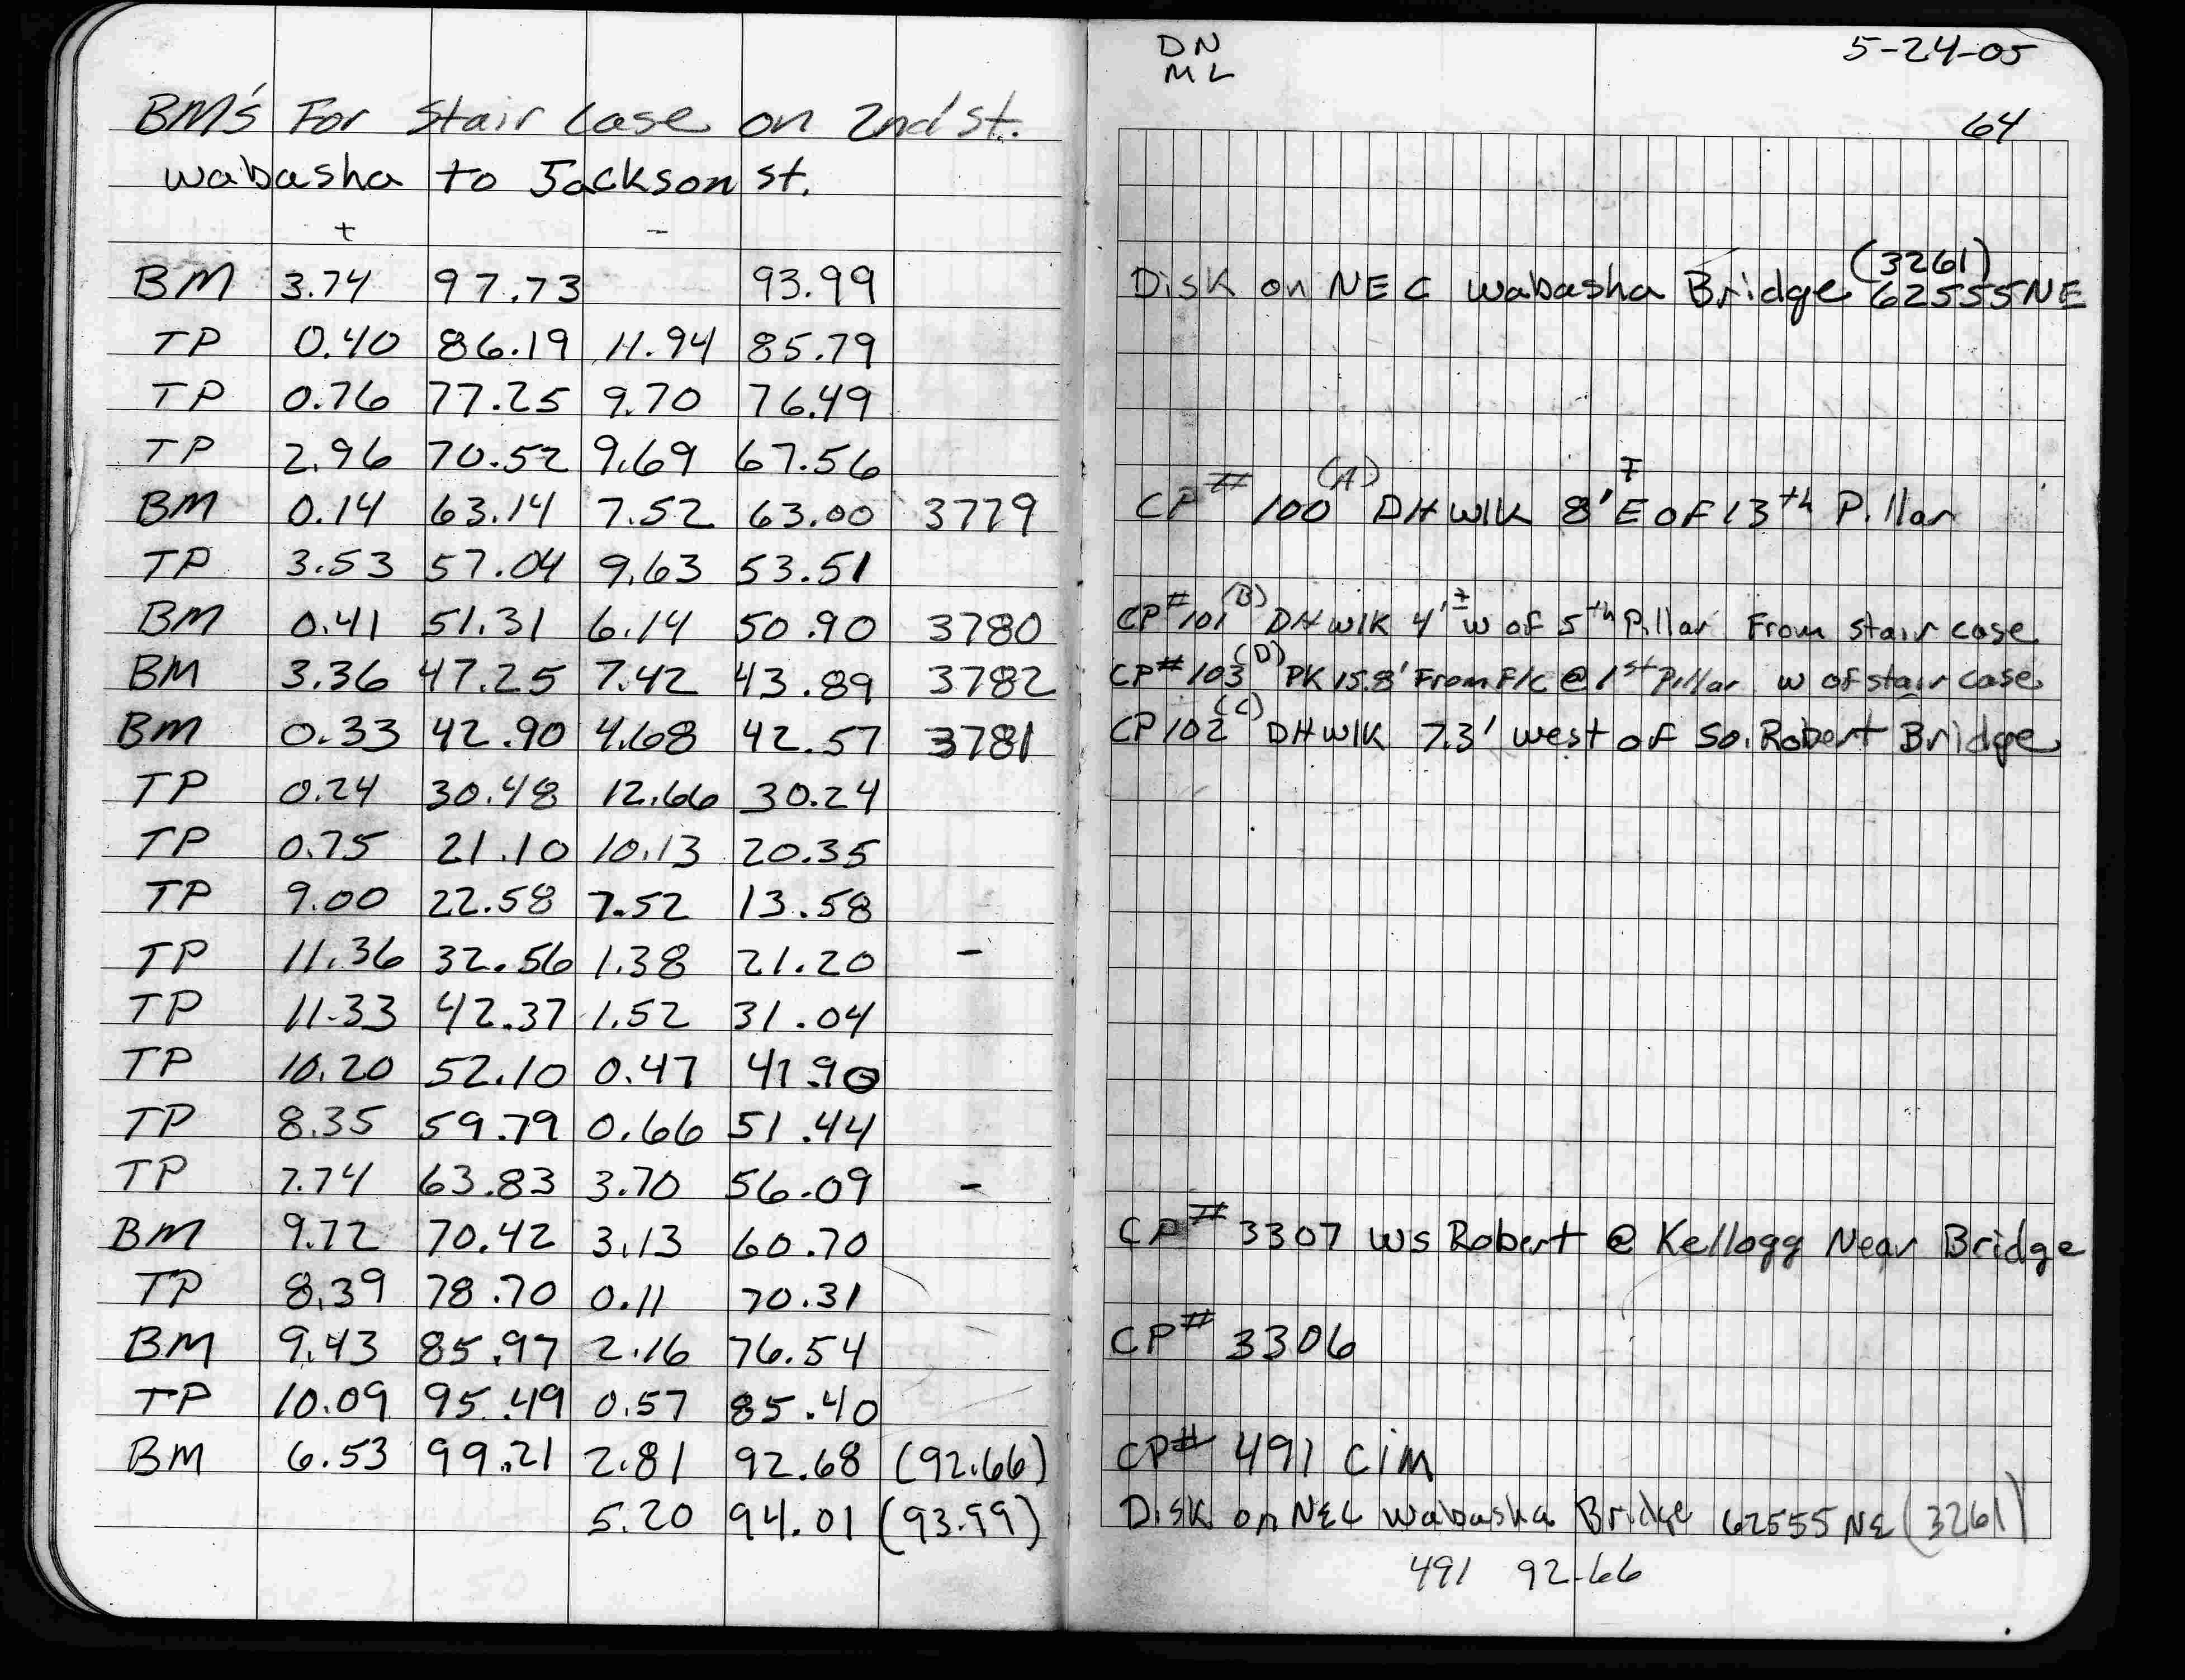 BM's For Stair Case on 2nd St.
Wabasha to Jackson St.
+ -
BM 3.74 97.73 93.99
TP 0.40 86.19 11.94 85.79
TP 0.76 77.25 9.70 76.49
TP 2.96 70.52 9.69 67.56
BM 0.14 63.14 7.52 63.00 3779
TP 3.53 57.04 9.63 53.51
BM 0.41 51.31 6.14 50.90 3780
BM 3.36 47.25 7.42 43.89 3782
BM 0.33 42.90 4.68 42.57 3781
TP 0.24 30.48 12.66 30.24
TP 0.75 21.10 10.13 20.35
TP 9.00 22.58 7.52 13.58
TP 11.36 32.56 1.38 21.20 -
TP 11.33 42.37 1.52 31.04
TP 10.20 52.10 0.47 41.90
TP 8.35 59.79 0.66 51.44
TP 7.74 63.83 3.70 56.09 -
BM 9.72 70.42 3.13 60.70
TP 8.39 78.70 0.11 70.31
BM 9.43 85.97 2.16 76.54
TP 10.09 95.49 0.57 85.40
BM 6.53 99.21 2.81 92.68 (92.66)
5.20 94.01 (93.99)
DN
ML
5-24-05
64
(3261)
Disk on NEC Wabasha Bridge 62555NE
CP# 100 (A) DHWlK 8' ± E OF 13th Pillar
CP#101 (B) DHWlK 4' ± W of 5th Pillar From Stair case
CP#103 (D) PK 15.8' From F/C @ 1st Pillar W of stair case
CP102 (C) DHWlK 7.3' west of So. Robert Bridge
CP# 3307 WS Robert @ Kellogg Near Bridge
CP# 3306
CP# 491 CIM
Disk on NEC Wabasha Bridge 62555NE (3261)
491 92.66